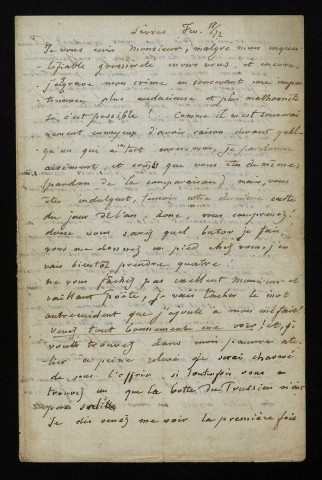 Sèvres Fev. 18/72
Je vous écris Monsieur, malgré mon inqua-
lifiable grossièreté envers vous et encore,
j'aggrave mon crime en concevant une impu-
tinence plus audacieuse et plus malhonnête
si c'est possible ! Comme il n'est souverai-
nement ennuyeux d'avoir raison devant quel-
qu'un qui a tort envers moi, je pardonne
aisément et crois que vous êtes de même,
(pardon de la comparaison) mais, vous
êtes indulgent, témoin votre dernière carte
du jour de l'an, donc, vous comprenez !
donc vous savez quel butor je fais
vous me donnez un pied chez vous, j'en
vais bientôt prendre quatre :
ne vous fâchez pas excellent Monsieur et
vaillant poète, je vais lâcher le mot
outrecuidant que j'ajoute à mon méfait
venez tout bonnement me voir ! et, si
voulez trouver dans mon pauvre ate-
lier à peine relevé je serai charmé
de vous l'offrir si toutefois vous en
trouvez un que la botte du Prussien n'ait
pas
Je dis venez me voir la première fois